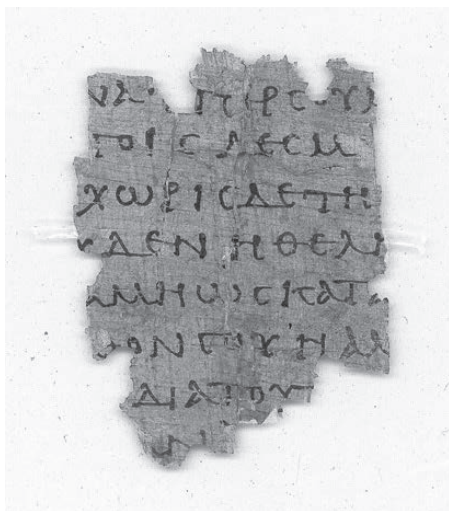 ΝΑ ΥΠΕΡ ΣΟΥ
ΤΟΙϹ ΔΕϹΜ
ΧΩΡΙϹ ΔΕ ΤΗ
ΥΔΕΝ ΗΘΕΛΗ
Α ΜΗ ΩϹ ΚΑΤΑ
ΘΟΝ ϹΟΥ Η ΑΛ
ΔΙΑ ΤΟΥΤ